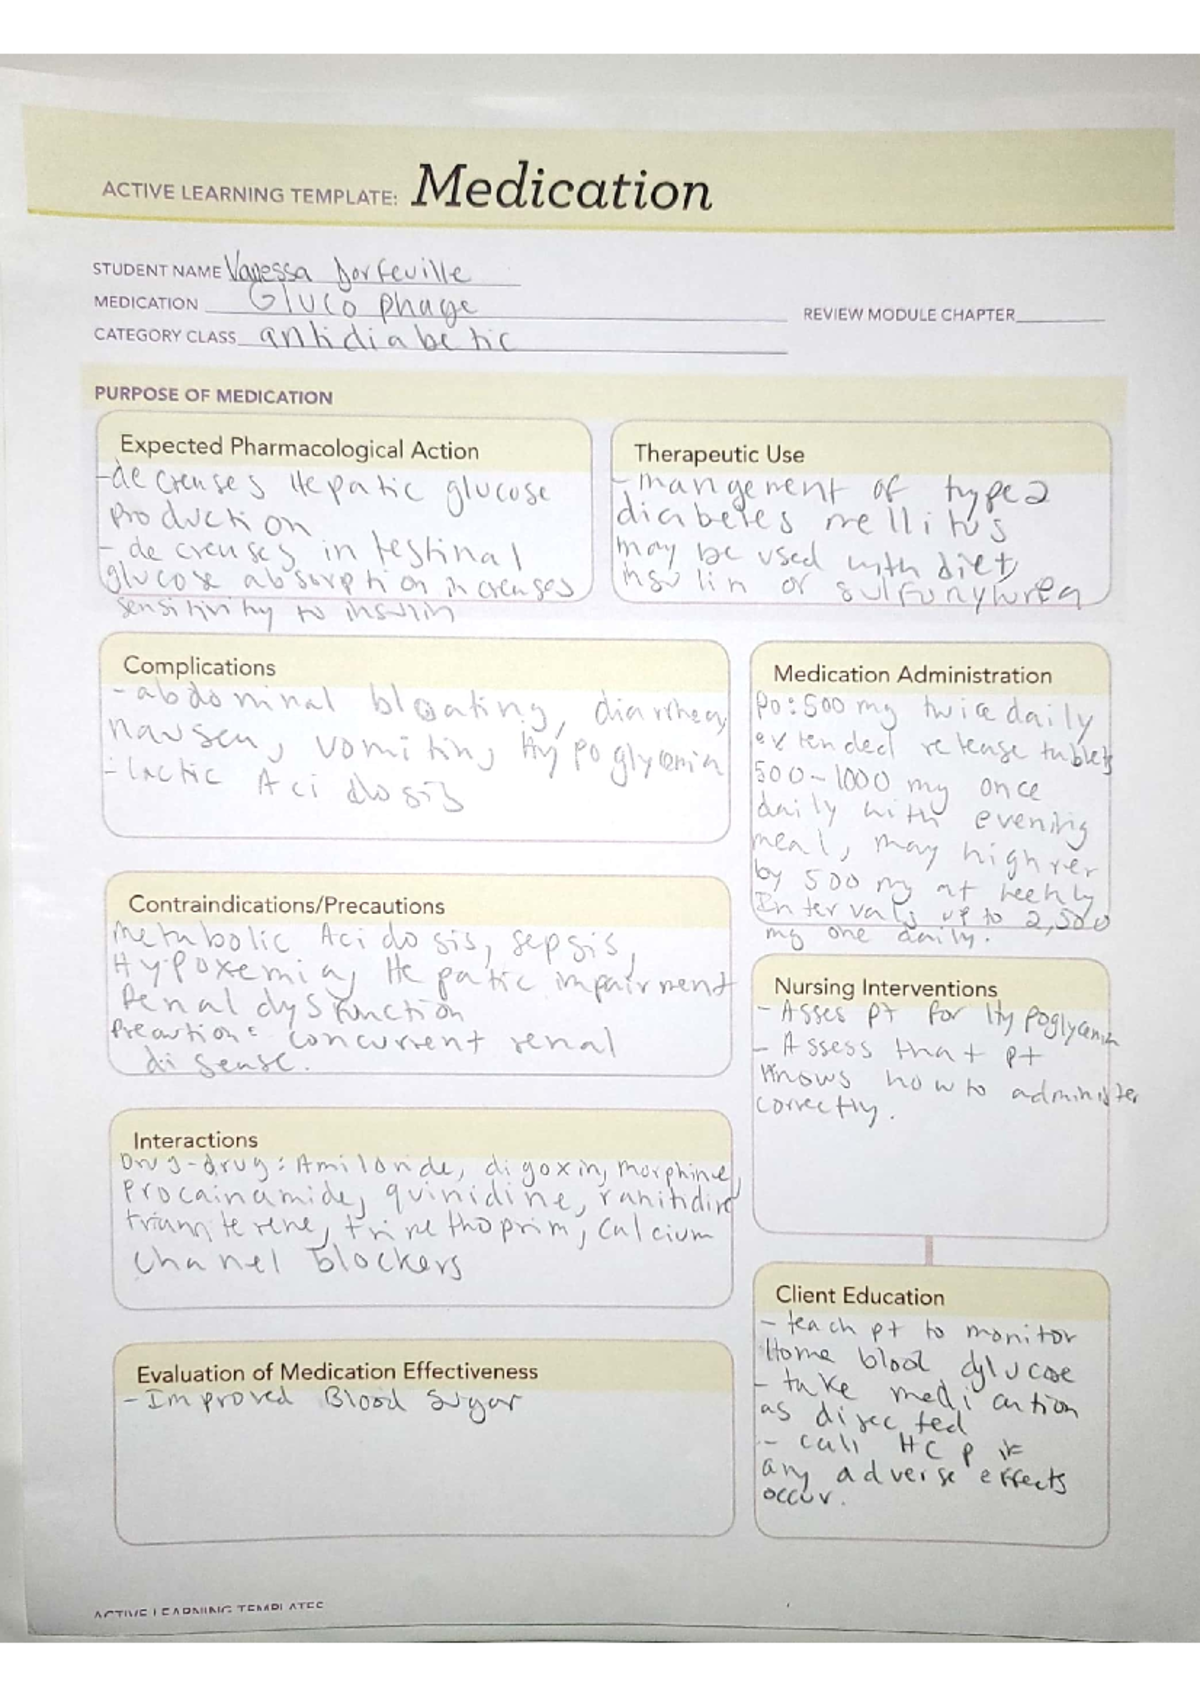 ACTIVE LEARNING TEMPLATE: Medication
STUDENT NAME Vanessa Dorfeuille
MEDICATION Gluco phage
REVIEW MODULE CHAPTER
CATEGORY CLASS antidiabetic
PURPOSE OF MEDICATION
Expected Pharmacological Action
- decreases Hepatic glucose
production
- decreases intestinal
glucose absorption increases
sensitivity to insulin
Therapeutic Use
- mangement of type 2
diabetes mellitus
may be used with diet,
insulin or sulfonylurea
Complications
- abdominal bloating, diarrhea,
nausea, vomiting Hypoglycemia
- lactic Acidosis
Medication Administration
PO: 500 mg twice daily
extended release tablets
500-1000 mg once
daily with evening
meal, may
by 500 mg at weekly
Intervals up to 2,500
mg one daily.
Contraindications/Precautions
Metabolic Acidosis, sepsis,
Hypoxemia, Hepatic impairment
Renal dysfunction
Precaution: concurrent renal
disease.
Nursing Interventions
- Asses pt for Hypoglycemia
- Assess that pt
knows how to administer
correctly.
Interactions
Drug-drug: Amiloride, digoxin, morphine,
procainamide, quinidine, ranitidine
triamterene, trimethoprim, calcium
chanel blockers
Client Education
- teach pt to monitor
Home blood glucose
- take medication
as directed
- call HCP if
any adverse effects
occur.
Evaluation of Medication Effectiveness
- Improved Blood sugar
ACTIVE LEARNING TEMPLATES